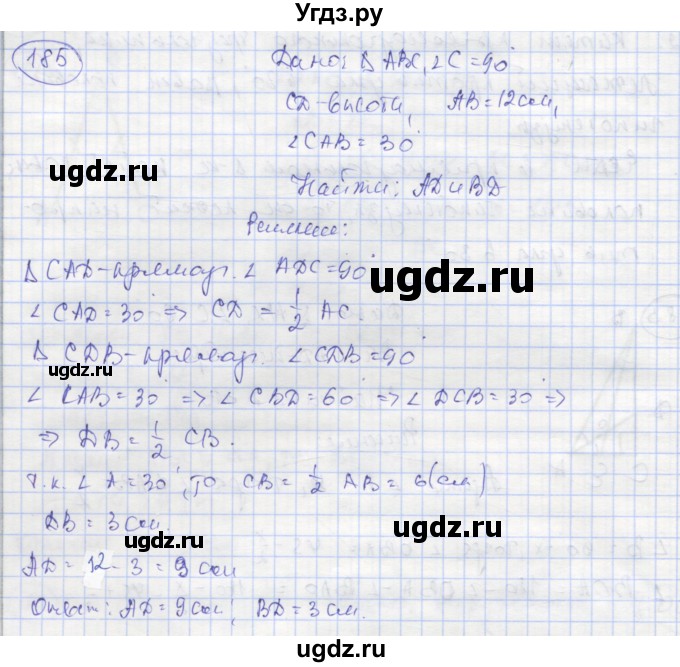 Угдз.ру
185
Дано: Δ ABC, ∠C = 90°
CD - высота, AB = 12 см,
∠CAB = 30°
ugdz.ru
Найти: AD и BD
Решение:
Δ CAD - прямоуг. ∠ ADC = 90°
ugdz.ru
∠ CAD = 30° => CD = 1/2 AC.
Δ CDB - прямоуг. ∠ CDB = 90°
ugdz.ru
∠ CAB = 30° => ∠ CBD = 60° => ∠ DCB = 30° =>
=> DB = 1/2 CB.
ugdz.ru
т.к. ∠ A = 30°, то CB = 1/2 AB = 6 (см)
DB = 3 см.
ugdz.ru
ugdz.ru
AD = 12 - 3 = 9 см
Ответ: AD = 9 см; BD = 3 см.
ugdz.ru